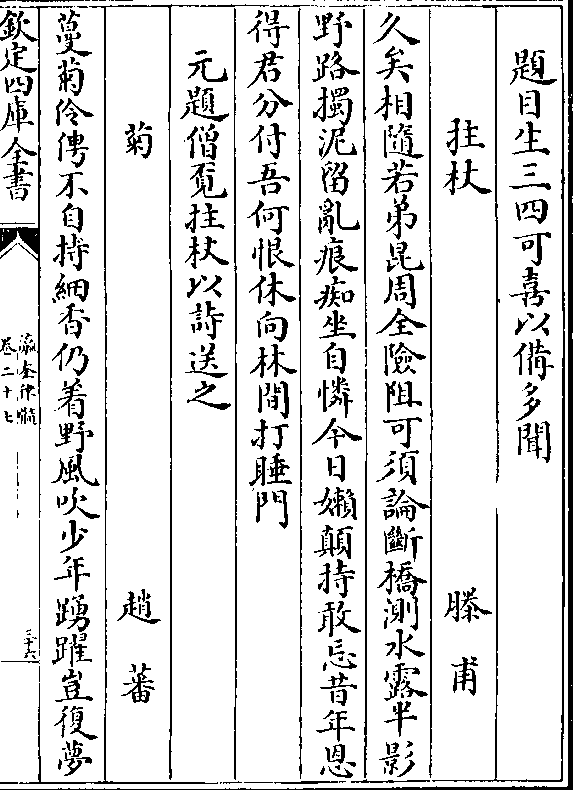 題目生三四可喜以備多聞
拄杖　滕甫
久矣相隨若弟昆周全險阻可須論斷橋測水露半影
野路擉泥留亂痕痴坐自憐今日嬾顛持敢忘昔年恩
得君分付吾何恨休向林間打睡門
元題僧覓拄杖以詩送之
菊　趙蕃
蔓菊伶俜不自持細香仍着野風吹少年踴躍豈復夢
欽定四庫全書
瀛奎律髓
卷二十七
三十六